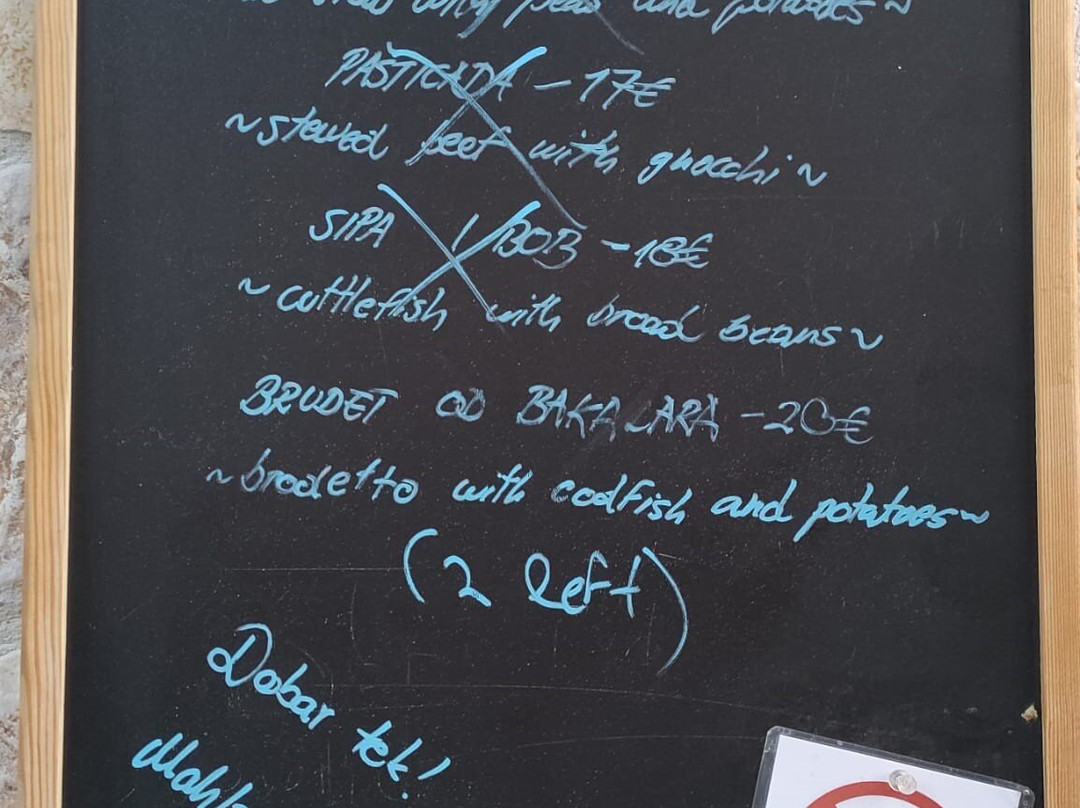 peas and potatoes~
PAŠTICADA - 17€
~stewed beef with gnocchi~
SIPA I BOB - 18€
~cuttlefish with broad beans~
BRUDET OD BAKALARA - 20€
~brodetto with codfish and potatoes~
(2 left)
Dobar tek!